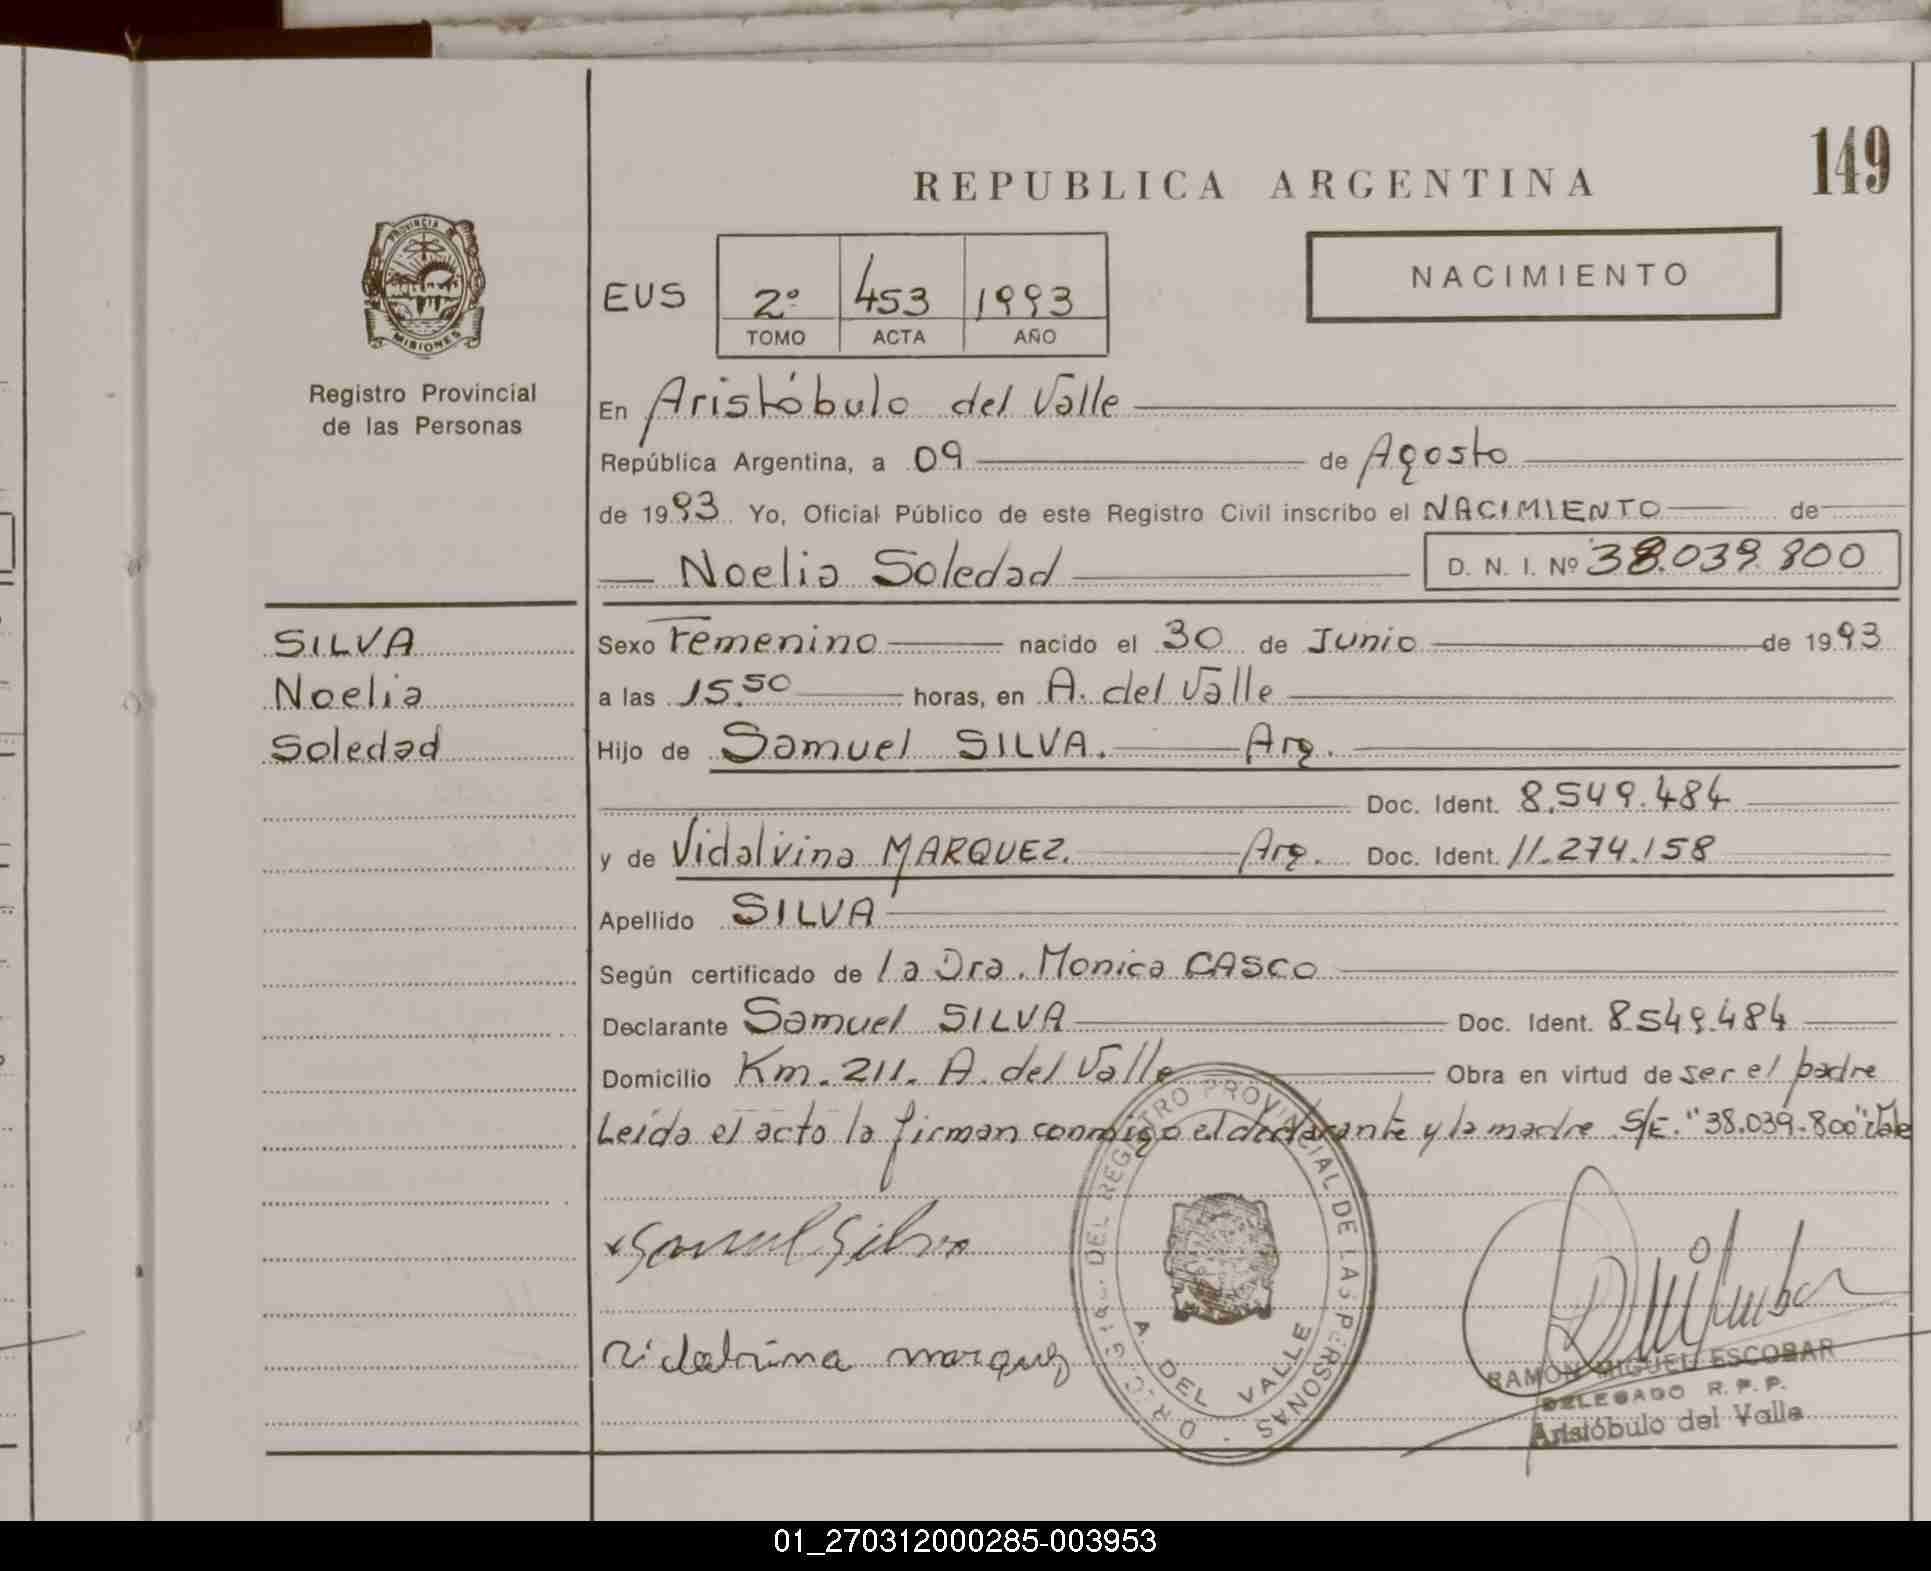 149
REPUBLICA ARGENTINA
PROVINCIA DE
MISIONES
Registro Provincial
de las Personas
EUS 2º 453 1993
TOMO ACTA AÑO
NACIMIENTO
En Aristóbulo del Valle
República Argentina, a 09 de Agosto
de 1993 Yo, Oficial Público de este Registro Civil inscribo el NACIMIENTO de
Noelia Soledad D. N. I. Nº 38.039.800
SILVA
Noelia
Soledad
Sexo Femenino nacido el 30 de Junio de 1993
a las 15.50 horas, en A. del Valle
Hijo de Samuel SILVA. Arg.
Doc. Ident. 8.549.484
y de Vidalvina MARQUEZ. Arg. Doc. Ident. 11.274.158
Apellido SILVA
Según certificado de la Dra. Monica CASCO
Declarante Samuel SILVA Doc. Ident. 8.549.484
Domicilio Km. 211. A. del Valle Obra en virtud de ser el padre
Leída el acto la firman conmigo el declarante y la madre S/E. "38.039.800" Vale
Samuel Silva
Vidalvina marquez
REGISTRO PROVINCIAL DE LAS PERSONAS
A. DEL VALLE
RAMON MIGUEL ESCOBAR
DELEGADO R. P. P.
Aristóbulo del Valle
01_270312000285-003953